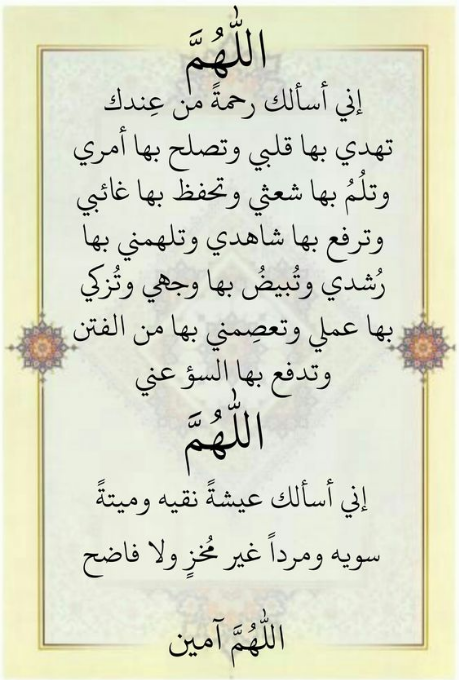 اللّٰهُمَّ
إني أسألك رحمةً من عِندك
تهدي بها قلبي وتصلح بها أمري
وتلُمُ بها شعثي وتحفظ بها غائبي
وترفع بها شاهدي وتلهمني بها
رُشدي وتُبيضُ بها وجهي وتُزكي
بها عملي وتعصِمني بها من الفتن
وتدفع بها السؤ عني
اللّٰهُمَّ
إني أسألك عيشةً نقيه وميتةً
سويه ومرداً غير مُخزٍ ولا فاضح
اللّٰهُمَّ آمين